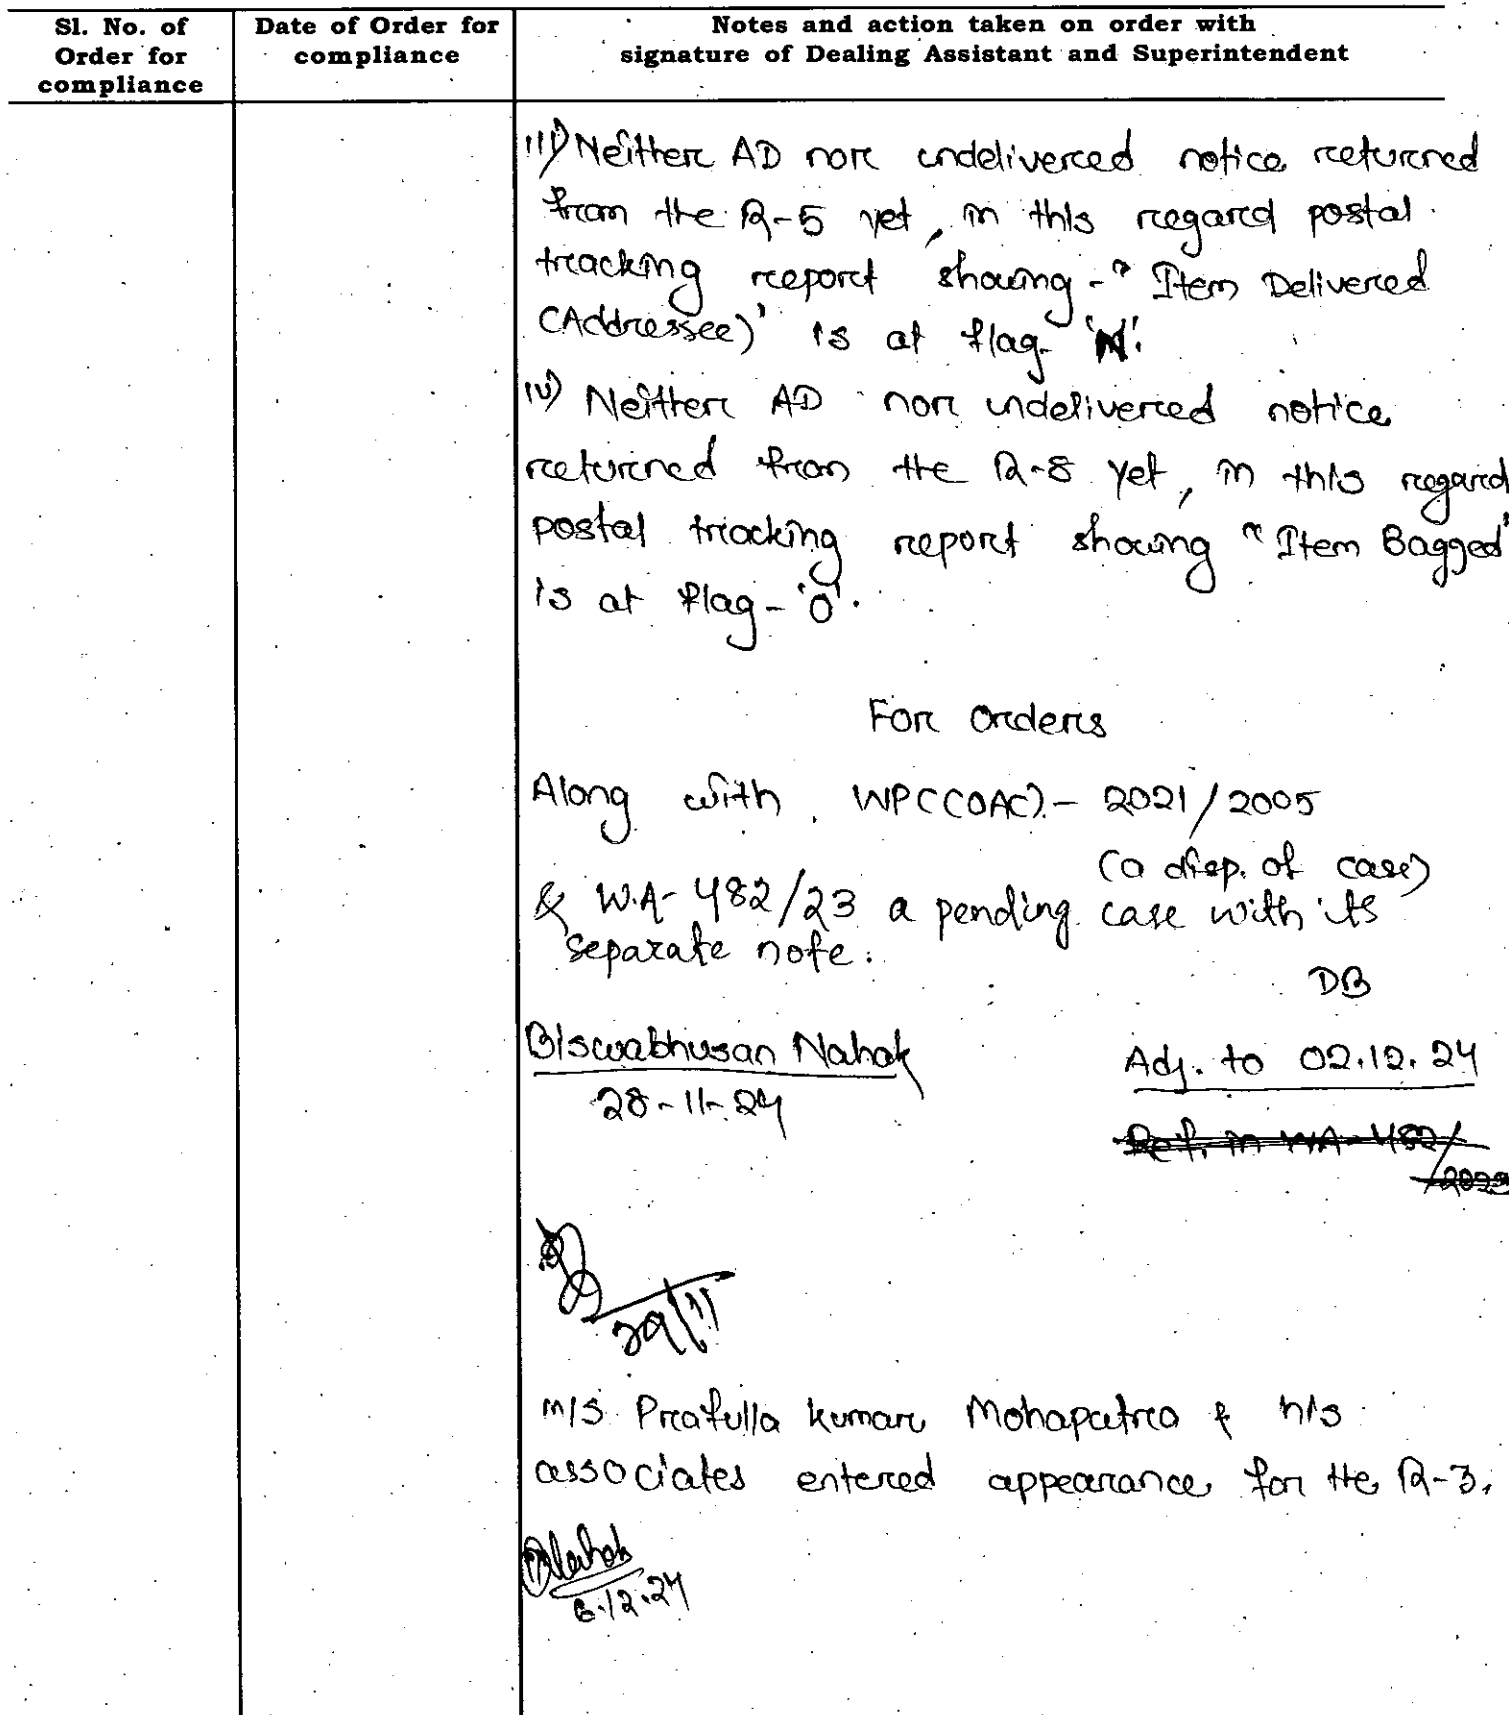 Sl. No. of Order for compliance
Date of Order for compliance
Notes and action taken on order with signature of Dealing Assistant and Superintendent
iii) Neither AD nor undelivered notice returned
from the R-5 yet, in this regard postal
tracking report showing - "Item Delivered
(Addressee)" is at flag- 'N'.
iv) Neither AD nor undelivered notice
returned from the R-8 yet, in this regard
postal tracking report showing "Item Bagged"
is at flag- 'O'.
For orders
Along with WPC(OAC) - 2021/2005
(a disp. of case)
& W.A- 482/23 a pending case with its
separate note.
DB
Biswabhusan Nahak
28-11-24
Adj. to 02.12.24
Ref. in WA-482/
/2023
29/11
M/S. Prafulla kumar Mohapatra & his
associates entered appearance for the R-3.
BNahak
6.12.24